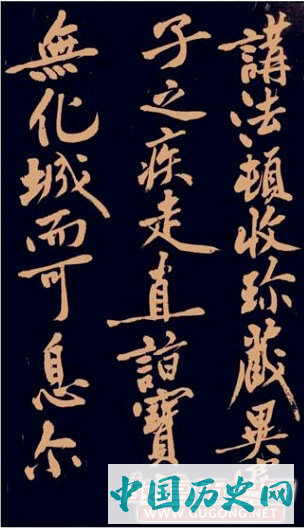 講法頓收珍藏異窮
子之疾走直詣寶
無化城而可息尓
中国历史网
GUGONG.NET